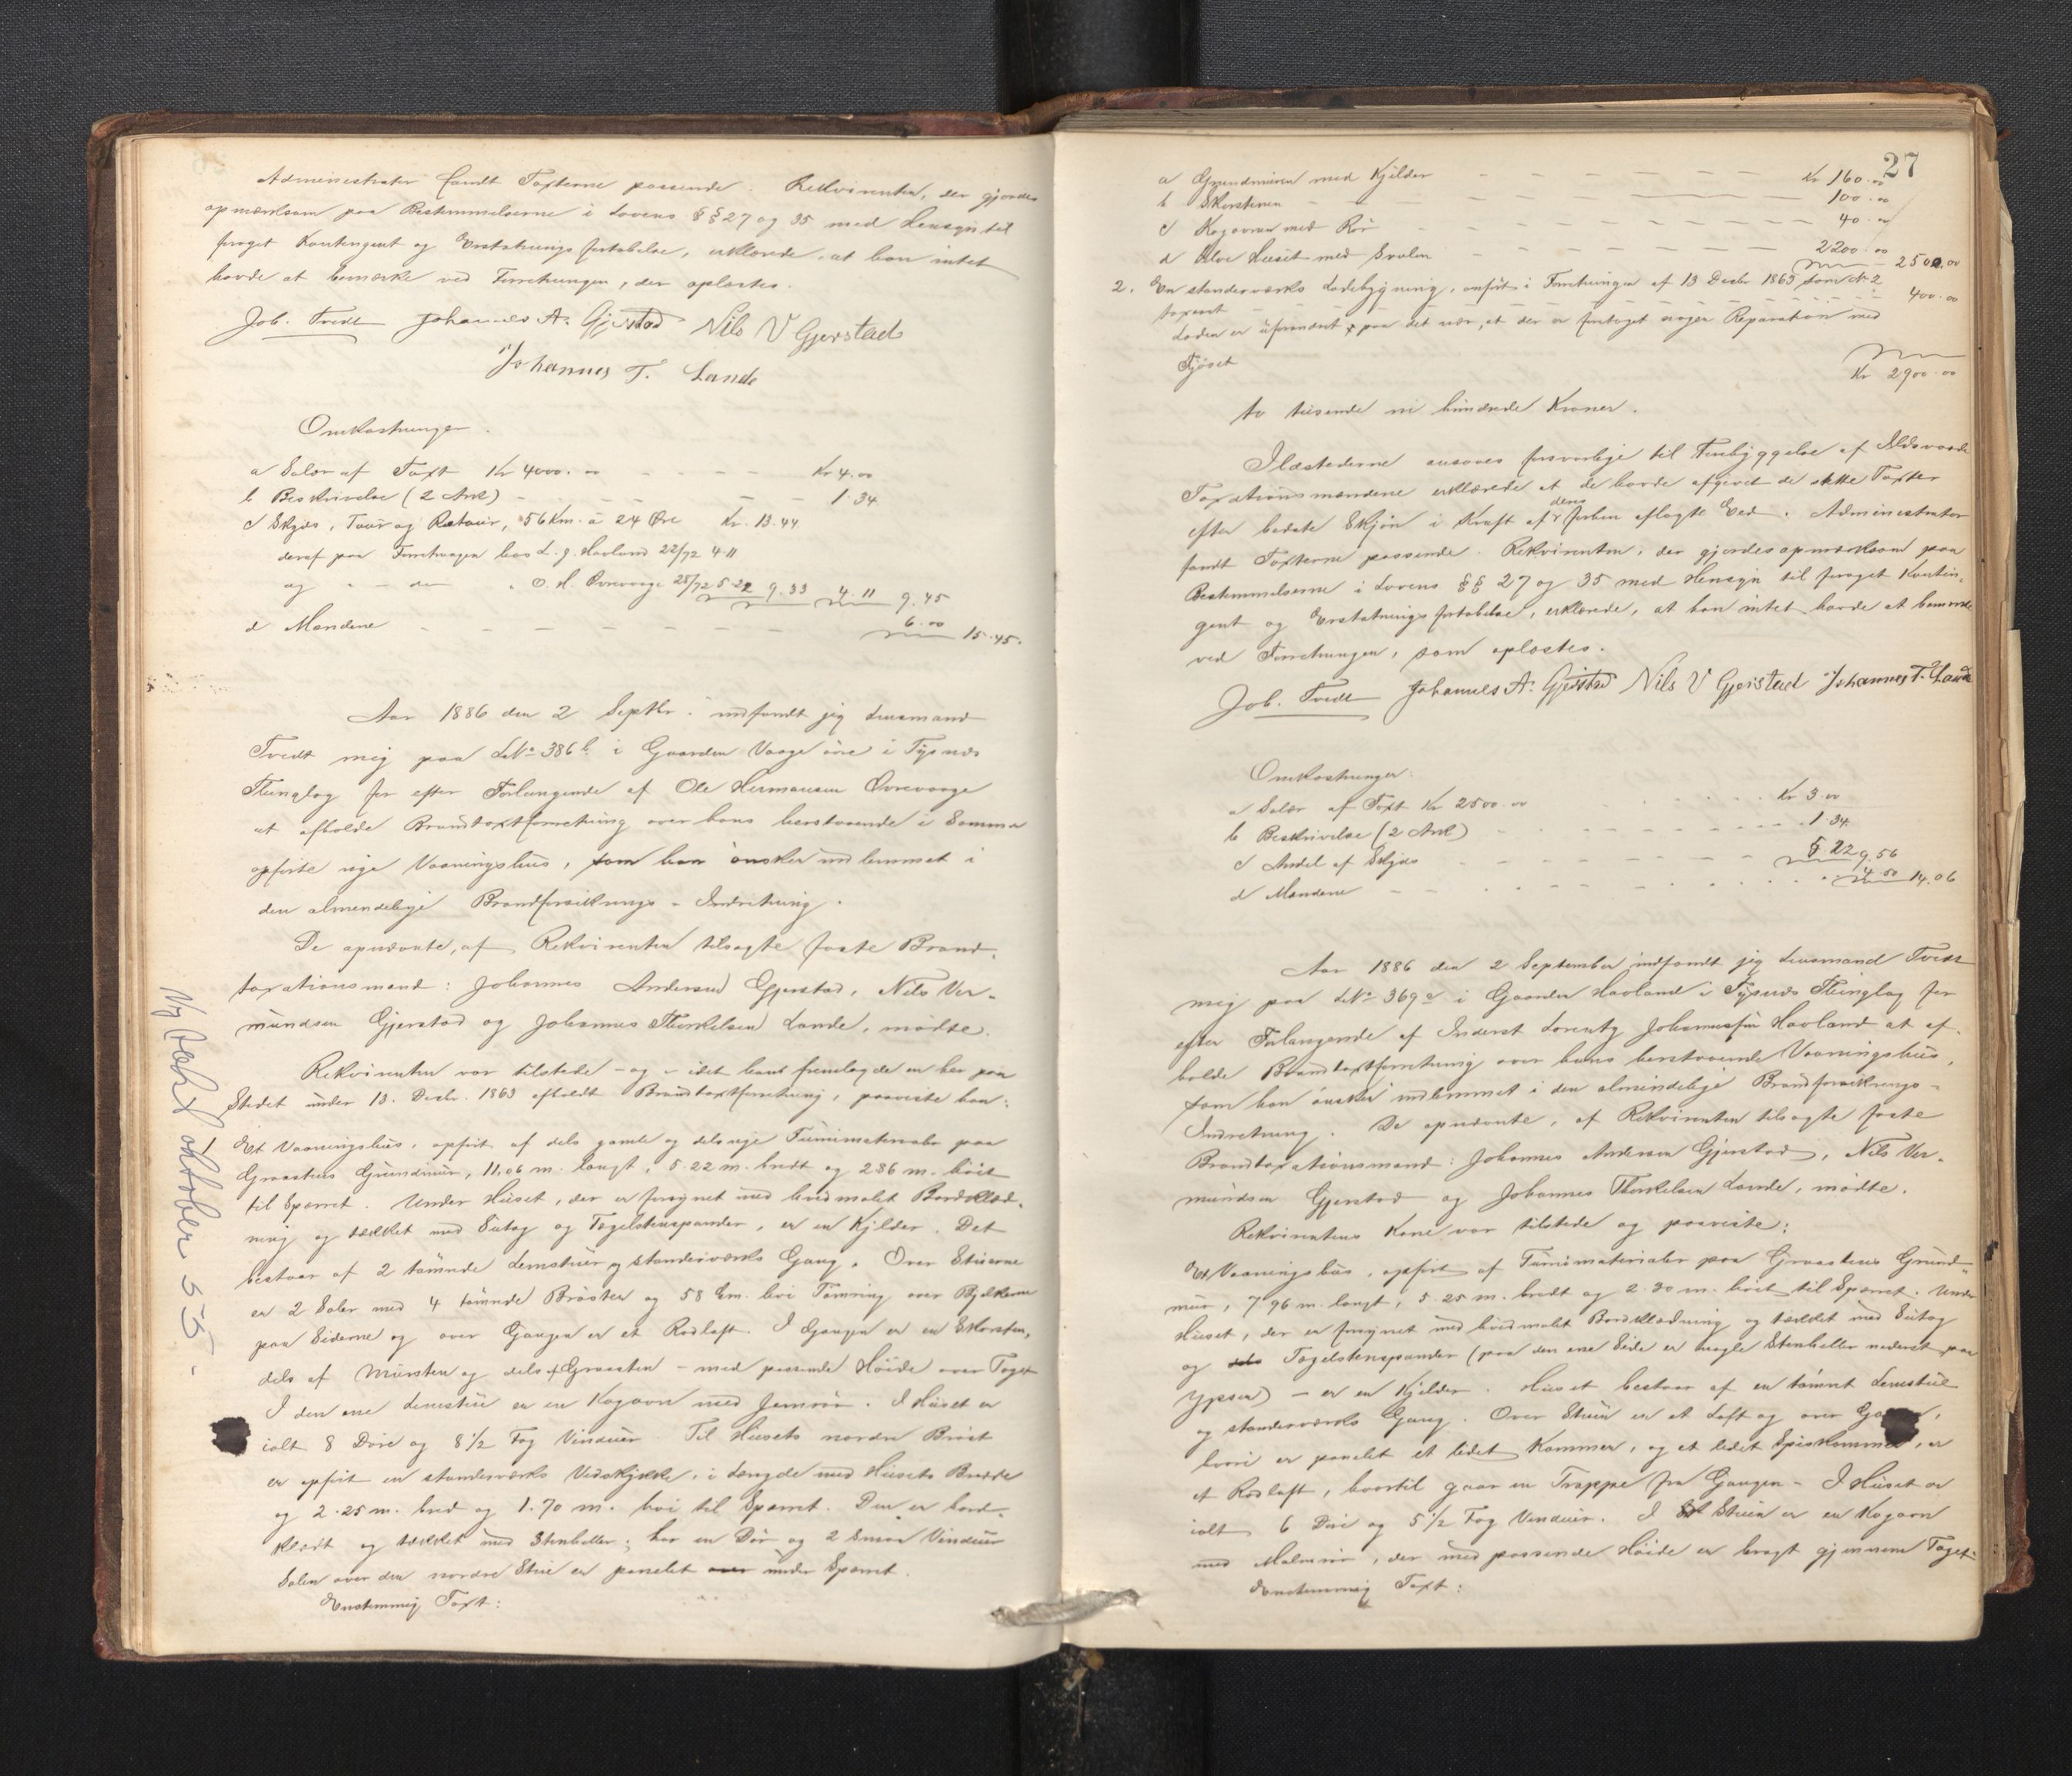 Administrator fandt Taxterne passende. Rekvirenten, der gjordes
opmærksom paa Bestemmelserne i Lovens §§ 27 og 35 med Hensyn til
forøget Kontingent og Erstatnings fortabelse, erklærede, at han intet
havde at bemærke ved Forretningen, der oplæstes.
Job. Tvedt Johannes A. Gjerstad Nils V Gjerstad
Johannes T. Lande
Omkostninger.
a Salær af Taxt Kr 4000.00 Kr 4.00
b Beskrivelse (2 Ark) 1.34
c Skyds, Tour og Retour, 56 Km. à 24 Øre Kr. 13.44
deraf paa Forretningen hos L. J. Havland 22/72 4.11
og - den O. H. Övrevaage 28/72 5.22 9.33 4.11 9.45
d Mændene 6.00 15.45.
Aar 1886 den 2 Septbr. indfandt jeg Lensmand
Tvedt mig paa LNo 386 b i Gaarden Vaage øvre i Tysnæs
Thinglag for efter Forlangende af Ole Hermansen Övrevaage
at afholde Brandtaxtforretning over hans herstaaende i Sommer
opførte nye Vaaningshus, som han ønsker indlemmet i
den almindelige Brandforsikrings-Indretning.
De opnævnte, af Rekvirenten tilsagte faste Brand-
taxationsmænd: Johannes Andersen Gjerstad, Nils Ver-
mundsen Gjerstad og Johannes Therkelsen Lande, mødte.
Rekvirenten var tilstede - og - idet han fremlagde en her paa
Stedet under 13. Decbr. 1863 afholdt Brandtaxtforretning, paaviste han:
1 Et Vaaningshus, opført af dels gamle og dels nye Furumaterialer paa
Graastens Grundmur, 11,06 m. langt, 5.22 m. bredt og 2.86 m. høit
til Sparret. Under Huset, der er forsynet med hvidmalet Bordklæd-
ning og tækket med Sutag og Tagelstenspander, er en Kjelder. Det
bestaar af 2 tømrede Lemstuer og standerværks Gang. Over Stuerne
er 2 Saler med 4 tømrede Brøster og 58 Cm. høi Tømring over Bjelkerne
paa Siderne og over Gangen er et Rodloft. I Gangen er en Skorsten,
dels af Mursten og dels af Graasten - med passende Høide over Taget
I den ene Lemstue er en Kogovn med Jernrør. I Huset er
ialt 8 Døre og 8 1/2 Fag Vinduer. Til Husets nordre Brøst
er opført en standerværks Vedskykke, i Længde med Husets Bredde
og 2.25 m. bred og 1.70 m. høi til Sparret. Den er bord-
klædt og tækket med Stenheller; har en Dør og 2 smaa Vinduer
Salen over den nordre Stue er panelet over under Sparret.
Enstemmig Taxt:
Ny taxt oktober 55 -
27
a Grundmuren med Kjelder Kr 160.00
b Skorstenen 100.00
c Kogovnen med Rør 40.00
d Selve Huset med Svalen 2200.00 2500.00
2. En standerværks Ladebygning, anført i Forretningen af 13 Decbr 1863 som No 2
taxeret 400.00
Laden er uforandret paa det nær, at der er foretaget nogen Reparation med
Fjøset
Kr 2900.00
to tusende ni hundrede Kroner.
Ildstederne ansaaes forsvarlige til Forebyggelse af Ildsvaade
Taxationsmændene erklærede at de havde afgivet de skete Taxter
efter bedste Skjøn i Kraft af deres forhen aflagte Eed. Administrator
fandt Taxterne passende. Rekvirenten, der gjordes opmærksom paa
Bestemmelserne i Lovens §§ 27 og 35 med Hensyn til forøget Kontin-
gent og Erstatnings fortabelse, erklærede, at han intet havde at bemærke
ved Forretningen, som oplæstes.
Job. Tvedt Johannes A. Gjerstad Nils V Gjerstad Johannes T. Lande
Omkostninger:
a Salær af Taxt Kr 2500.00 Kr 3.00
b Beskrivelse (2 Ark) 1.34
c Andel af Skyds 5.22 9.56
d Mændene 4.50 14.06
Aar 1886 den 2 September indfandt jeg Lensmand Tvedt
mig paa LNo 369 a i Gaarden Havland i Tysnæs Thinglag for
efter Forlangende af Inderst Lorentz Johannesen Havland at af-
holde Brandtaxtforretning over hans herstaaende Vaaningshus,
som han ønsker indlemmet i den almindelige Brandforsikrings-
Indretning. De opnævnte, af Rekvirenten tilsagte faste
Brandtaxationsmænd: Johannes Andersen Gjerstad, Nils Ver-
mundsen Gjerstad og Johannes Therkelsen Lande, mødte.
Rekvirentens Kone var tilstede og paaviste:
Et Vaaningshus, opført af Furumaterialer paa Graastens Grund-
mur, 7.96 m. langt, 5.25 m. bredt og 2.30 m. høit til Sparret. Under
Huset, der er forsynet med hvidmalet Bordklædning og tækket med Sutag
og dels Tagelstenspander (paa den ene Side er nogle Stenheller nederst paa
Ypsen) - er en Kjelder. Huset bestaar af en tømret Lemstue
og standerværks Gang. Over Stuen er et Loft og over Gangen,
hvori er panelet et lidet Kammer, og et lidet Spiskammer, er
et Rodloft, hvortil gaar en Trappe fra Gangen - I Huset er
ialt 6 Døre og 5 1/2 Fag Vinduer. I Stuen er en Kogovn
med Malmrør, der med passende Høide er bragt gjennem Taget.
Enstemmig Taxt: